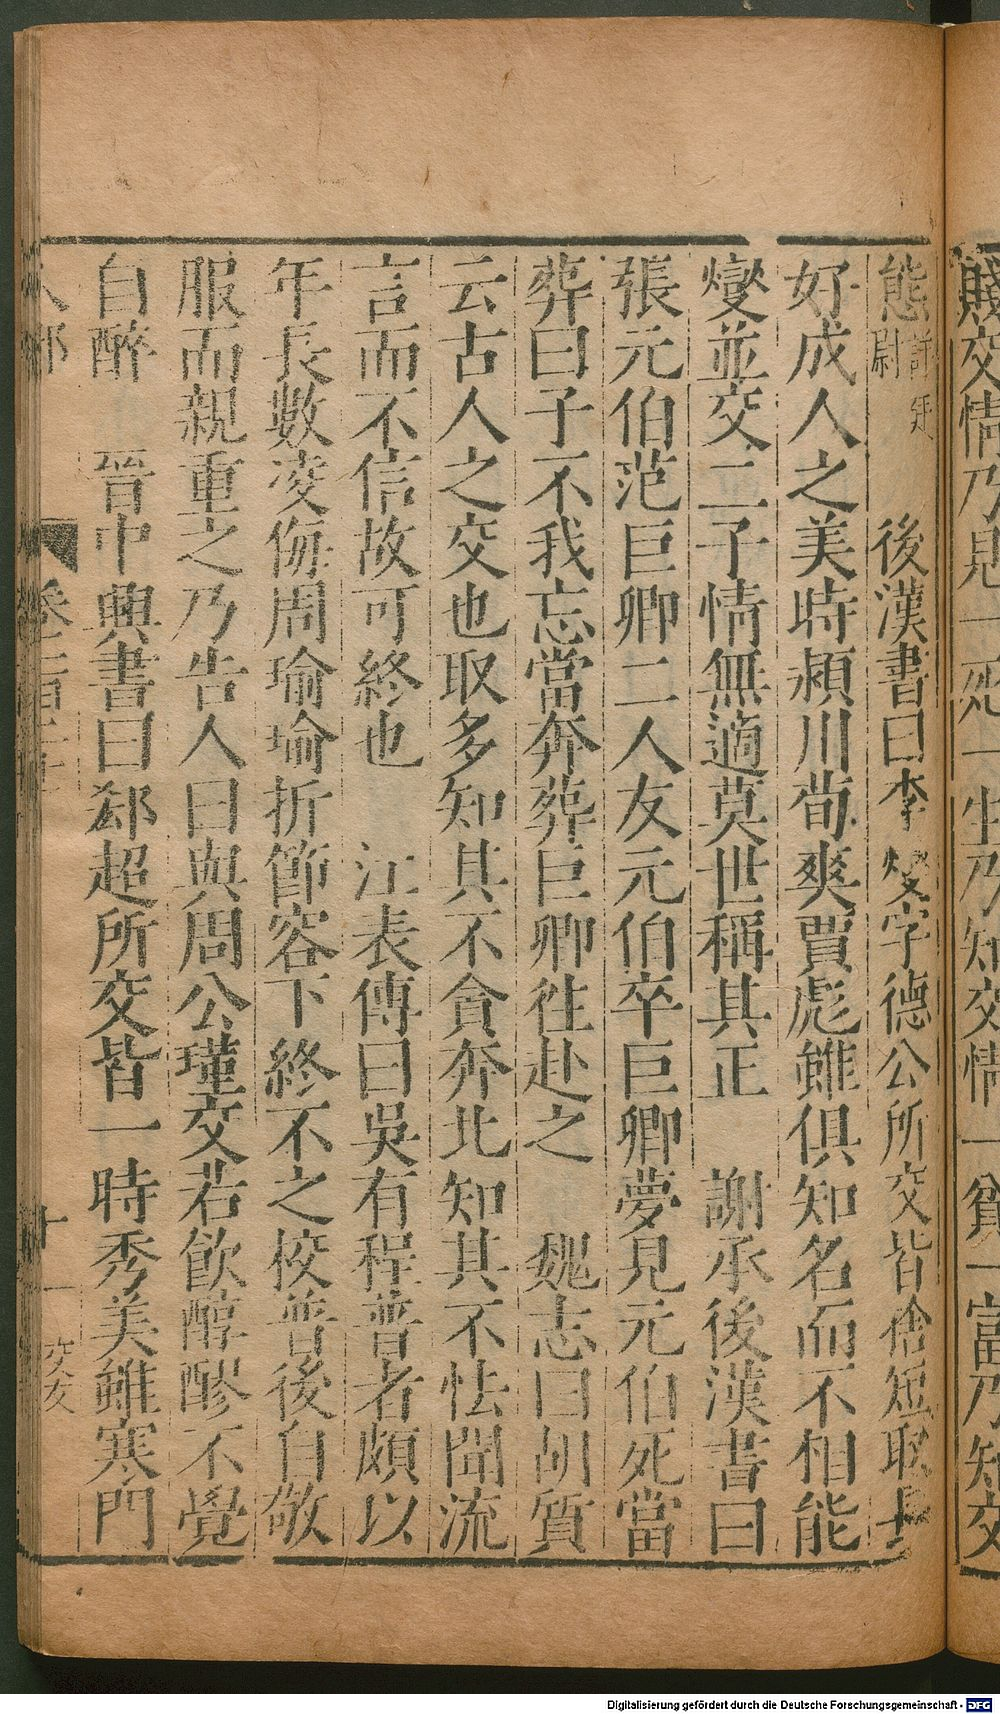 賤交情乃見一死一生乃知交情一貧一富乃知交
態許廷尉　後漢書曰李燮字德公所交皆舍短取長
好成人之美時潁川荀爽賈彪雖俱知名而不相能
燮並交二子情無適莫世稱其正　謝承後漢書曰
張元伯范巨卿二人友元伯卒巨卿夢見元伯死當
葬曰子不我忘當奔葬巨卿往赴之　魏志曰胡質
云古人之交也取多知其不貪奔北知其不怯聞流
言而不信故可終也　江表傳曰吳有程普者頗以
年長數凌侮周瑜瑜折節容下終不之校普後自敬
服而親重之乃告人曰與周公瑾交若飲醇醪不覺
自醉　晉中興書曰郄超所交皆一時秀美雖寒門
人部　卷二百三十　十一　交友
Digitalisierung gefördert durch die Deutsche Forschungsgemeinschaft - DFG